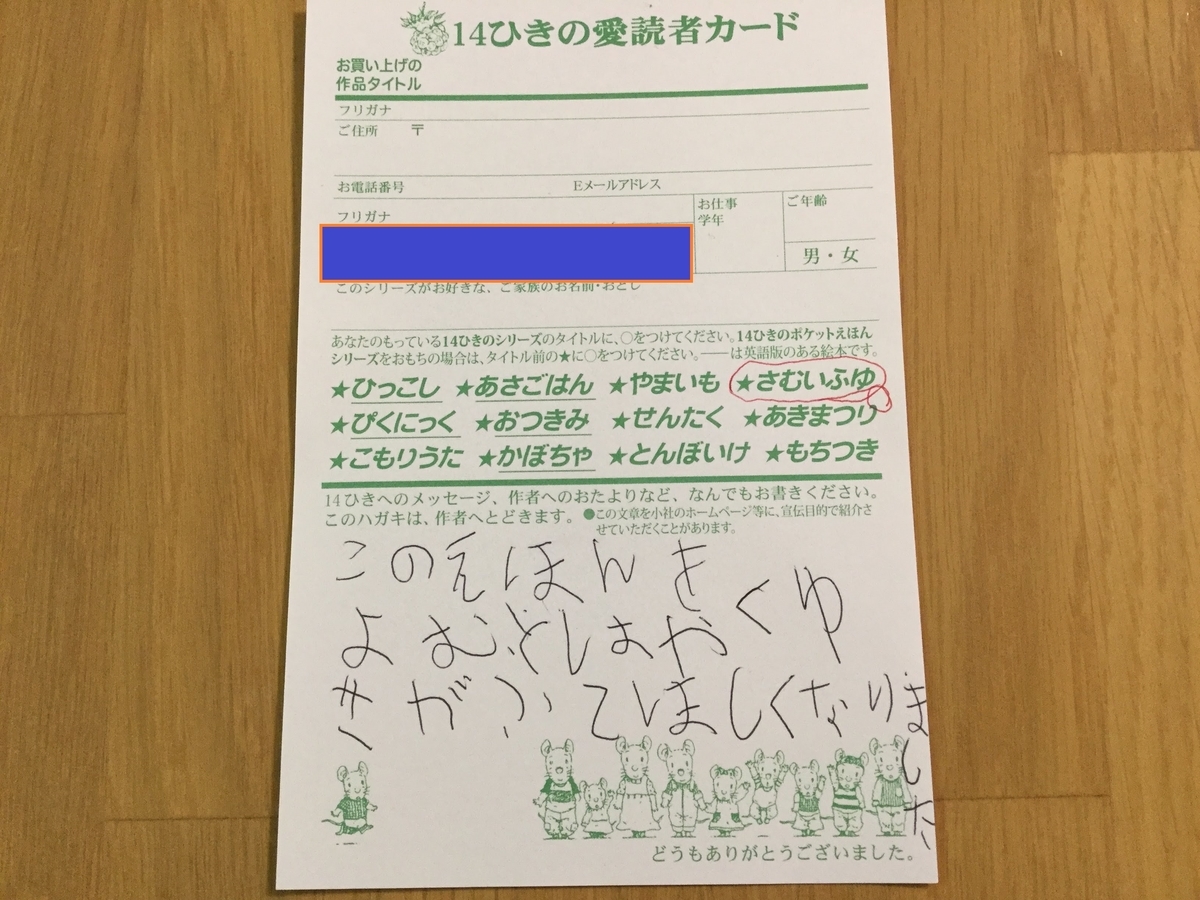 14ひきの愛読者カード
お買い上げの
作品タイトル
フリガナ
ご住所 〒
お電話番号 Eメールアドレス
フリガナ
お仕事
学年
ご年齢
男・女
このシリーズがお好きな、ご家族のお名前・おとし
あなたのもっている14ひきのシリーズのタイトルに、○をつけてください。14ひきのポケットえほん
シリーズをおもちの場合は、タイトル前の★に○をつけてください。――は英語版のある絵本です。
★ひっこし ★あさごはん ★やまいも ★さむいふゆ
★ぴくにっく ★おつきみ ★せんたく ★あきまつり
★こもりうた ★かぼちゃ ★とんぼいけ ★もちつき
14ひきへのメッセージ、作者へのおたよりなど、なんでもお書きください。
このハガキは、作者へとどきます。●この文章を小社のホームページ等に、宣伝目的で紹介さ
せていただくことがあります。
このえほんを
よむとはやくゆ
きがふてほしくなりました
どうもありがとうございました。